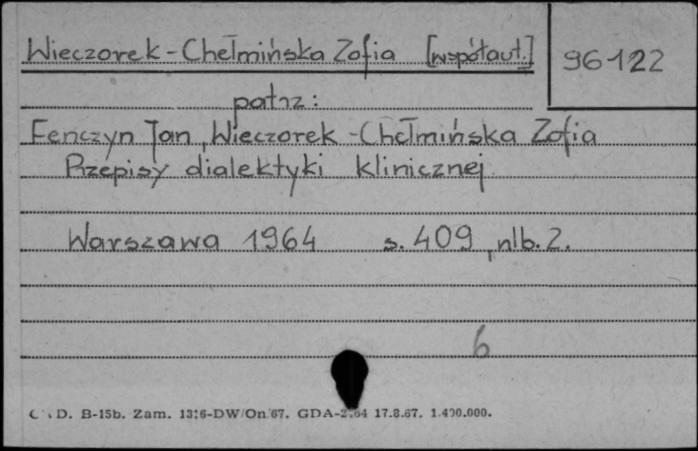 Wieczorek-Chełmińska Zofia [współaut.]
96122
patrz:
Fenczyn Jan, Wieczorek-Chełmińska Zofia
Przepisy dialektyki klinicznej
Warszawa 1964 s. 409, nlb. 2.
6
D. B-15b. Zam. 1316-DW/On/67. GDA-2.64 17.8.67. 1.400.000.